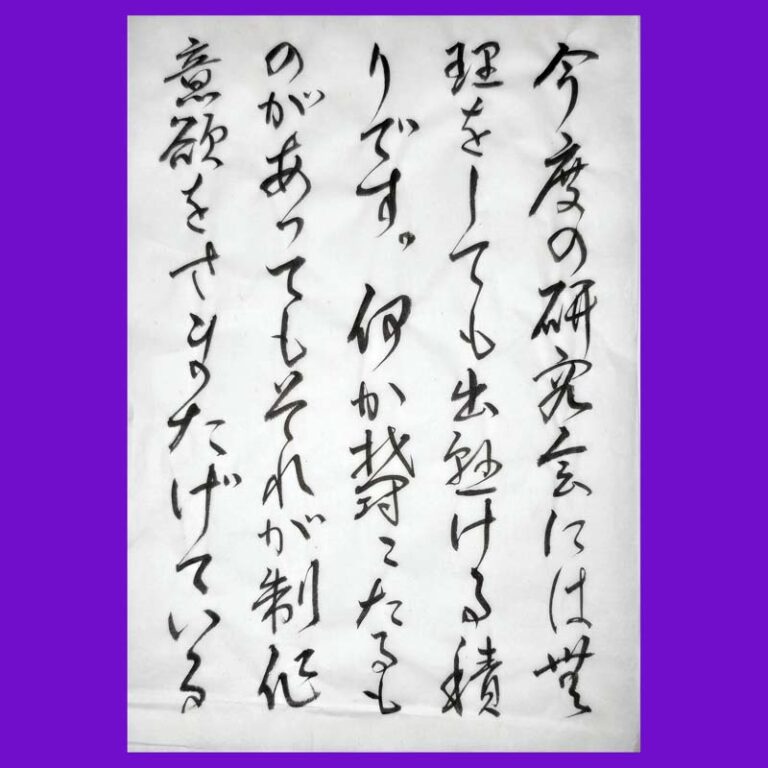 今度の研究会には無
理をしても出懸ける積
りです。何か欝こたるも
のがあってもそれが制作
意欲をさまたげている